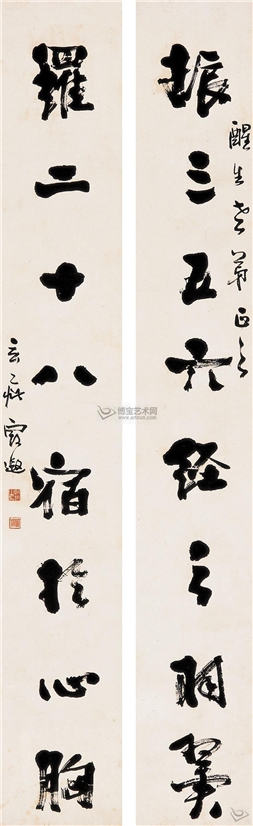 醒生老弟正之
振三五六經之羽翼
羅二十八宿於心胸
博宝艺术网
www.artxun.com